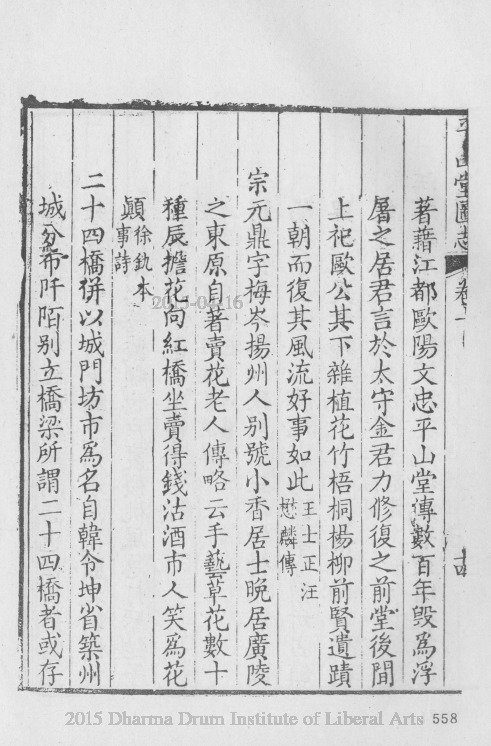 平山堂圖志 卷十 十四
著藉江都歐陽文忠平山堂傳數百年毀爲浮
屠之居君言於太守金君力修復之前堂後閣
上祀歐公其下雜植花竹梧桐楊柳前賢遺蹟
一朝而復其風流好事如此 王士正汪
懋麟傳
宗元鼎字梅岑揚州人別號小香居士晚居廣陵
之東原自著賣花老人傳略云手藝草花數十
種辰擔花向紅橋坐賣得錢沽酒市人笑爲花
顛 徐釚本
事詩
二十四橋併以城門坊市爲名自韓令坤省築州
城分布阡陌別立橋梁所謂二十四橋者或存
2015-04-16
2015 Dharma Drum Institute of Liberal Arts 558